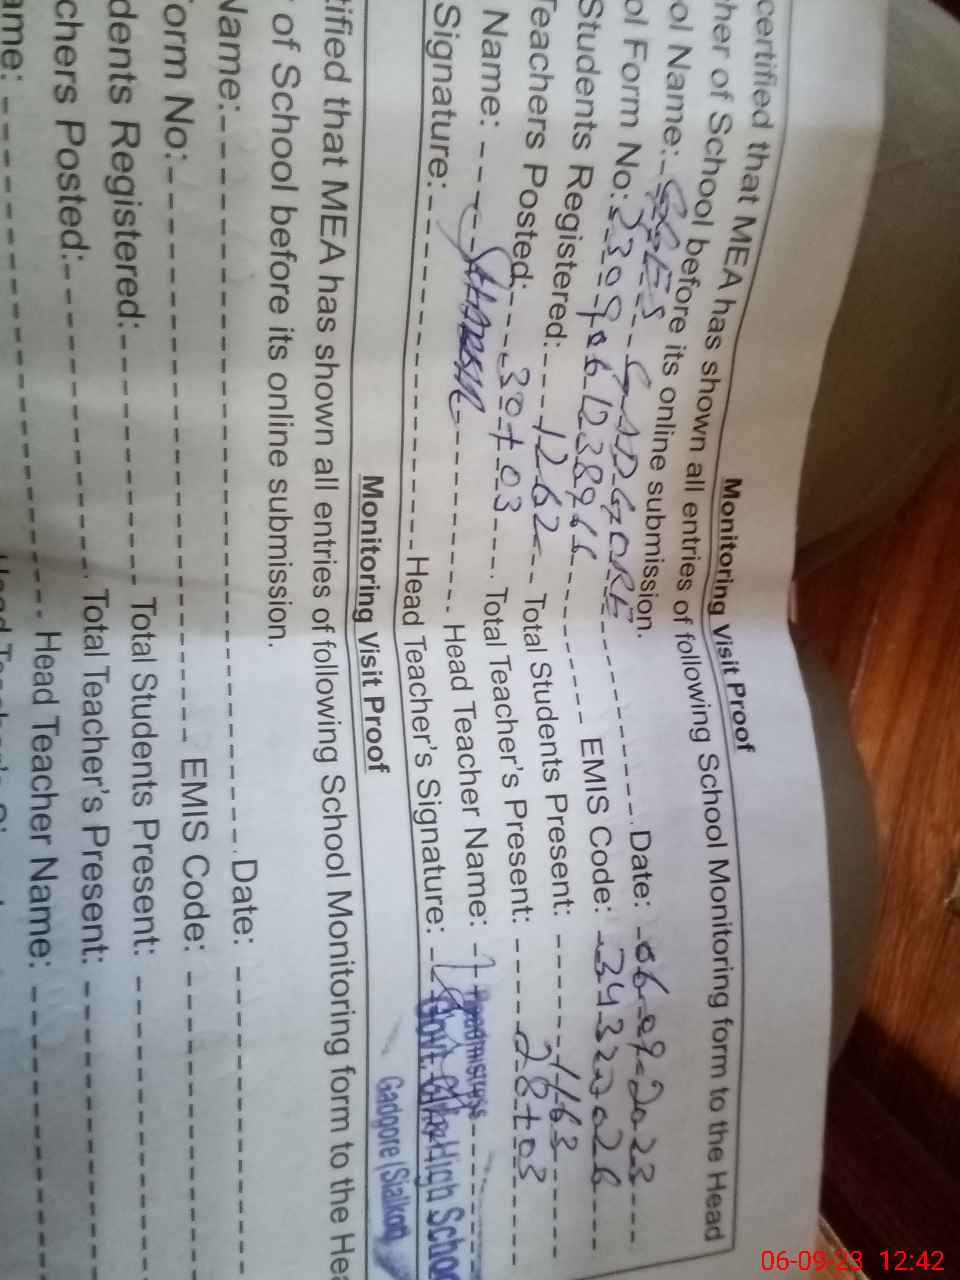 Monitoring Visit Proof
certified that MEA has shown all entries of following School Monitoring form to the Head
her of School before its online submission.
ol Name: GGES GADGORE Date: 06-09-2023
ol Form No: EMIS Code: 34320026
Students Registered: 1262 Total Students Present: 1163
Teachers Posted: 30+03 Total Teacher's Present: 28+03
Name: Head Teacher Name: Headmistress
Signature: Head Teacher's Signature: Govt. Girls High Schoo
Gadgore (Sialkot)
Monitoring Visit Proof
tified that MEA has shown all entries of following School Monitoring form to the Hea
of School before its online submission.
Name: Date:
orm No: EMIS Code:
dents Registered: Total Students Present:
chers Posted: Total Teacher's Present:
ame: Head Teacher Name:
06-09-23 12:42